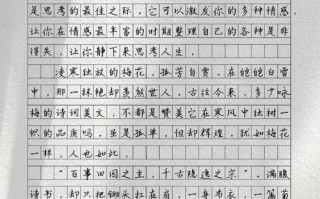 是思考的最佳之际，它可以激发你的多种情感，
让你在情感最丰富的时期整理自己的各种是非
得失，让你静下来思考人生。
凌寒独放的梅花，孤芳自赏，在皑皑白雪
中，那一抹艳却羡煞世人，古往今来，多少咏
梅的诗词美文，不都是赞美它在寒风中独树一
帜的品质吗，虽是孤单，但却辉煌，犹如梅花
一样，人也如此。
“百事田园之主，千古隐逸之宗”，满腹
诗书，却只把锄头扛在肩，一身布衣，一篱菊